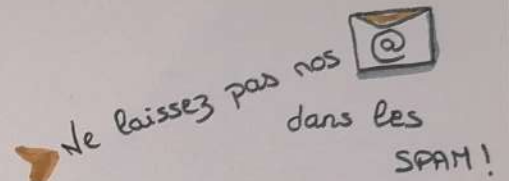 Ne laissez pas nos @
dans les
SPAM!